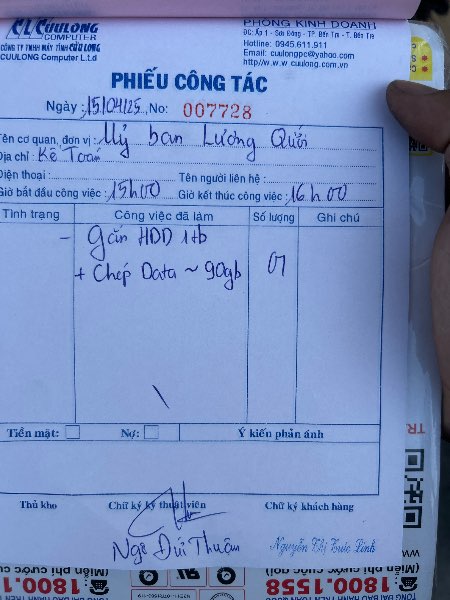 CUULONG
COMPUTER
CÔNG TY TNHH MÁY TÍNH CỬU LONG
CUULONG Computer L.t.d
PHÒNG KINH DOANH
ĐC: Ấp 1 - Sơn Đông - TP. Bến Tre - T. Bến Tre
Hotline: 0945.611.911
Email: cuulongpc@yahoo.com
http//w.w.w cuulong.com.vn
PHIẾU CÔNG TÁC
Ngày: 15/04/25 No: 007728
Tên cơ quan, đơn vị: Uỷ ban Lương Quới
Địa chỉ: Kế Toán
Điện thoại: Tên người liên hệ:
Giờ bắt đầu công việc: 15h00 Giờ kết thúc công việc: 16h00
Tình trạng Công việc đã làm Số lượng Ghi chú
- gắn HDD 1tb
+ Chép Data ~ 90gb 01
Tiền mặt: Nợ: Ý kiến phản ánh
Thủ kho Chữ ký kỹ thuật viên Chữ ký khách hàng
Ngô Đức Thuận
Nguyễn Thị Trúc Linh
1800.1558